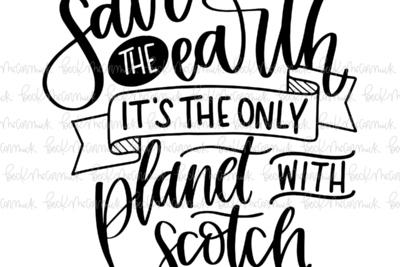 Save
THE earth
IT'S THE ONLY
planet WITH
scotch